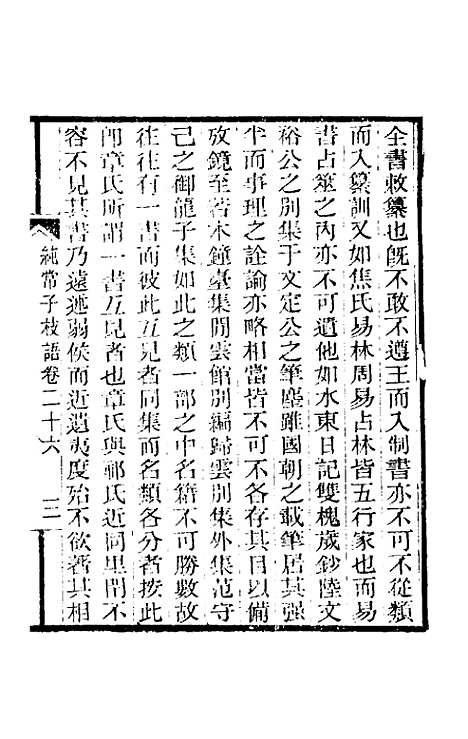 全書敕纂也旣不敢不遵王而入制書亦不可不從類
而入纂訓又如焦氏易林周易占林皆五行家也而易
書占筮之內亦不可遺他如水東日記雙槐歲鈔陸文
裕公之別集于文定公之筆塵雖國朝之載筆居其强
半而事理之詮論亦略相當皆不可不各存其目以備
攷鏡至若木鐘臺集閒雲館別編歸雲別集外集范守
己之御龍子集如此之類一部之中名籍不可勝數故
往往有一書而彼此互見者同集而名類各分者按此
卽章氏所謂一書互見者也章氏與祁氏近同里閈不
容不見其書乃遠述弱侯而近遺夷度殆不欲著其相
純常子枝語卷二十六
三